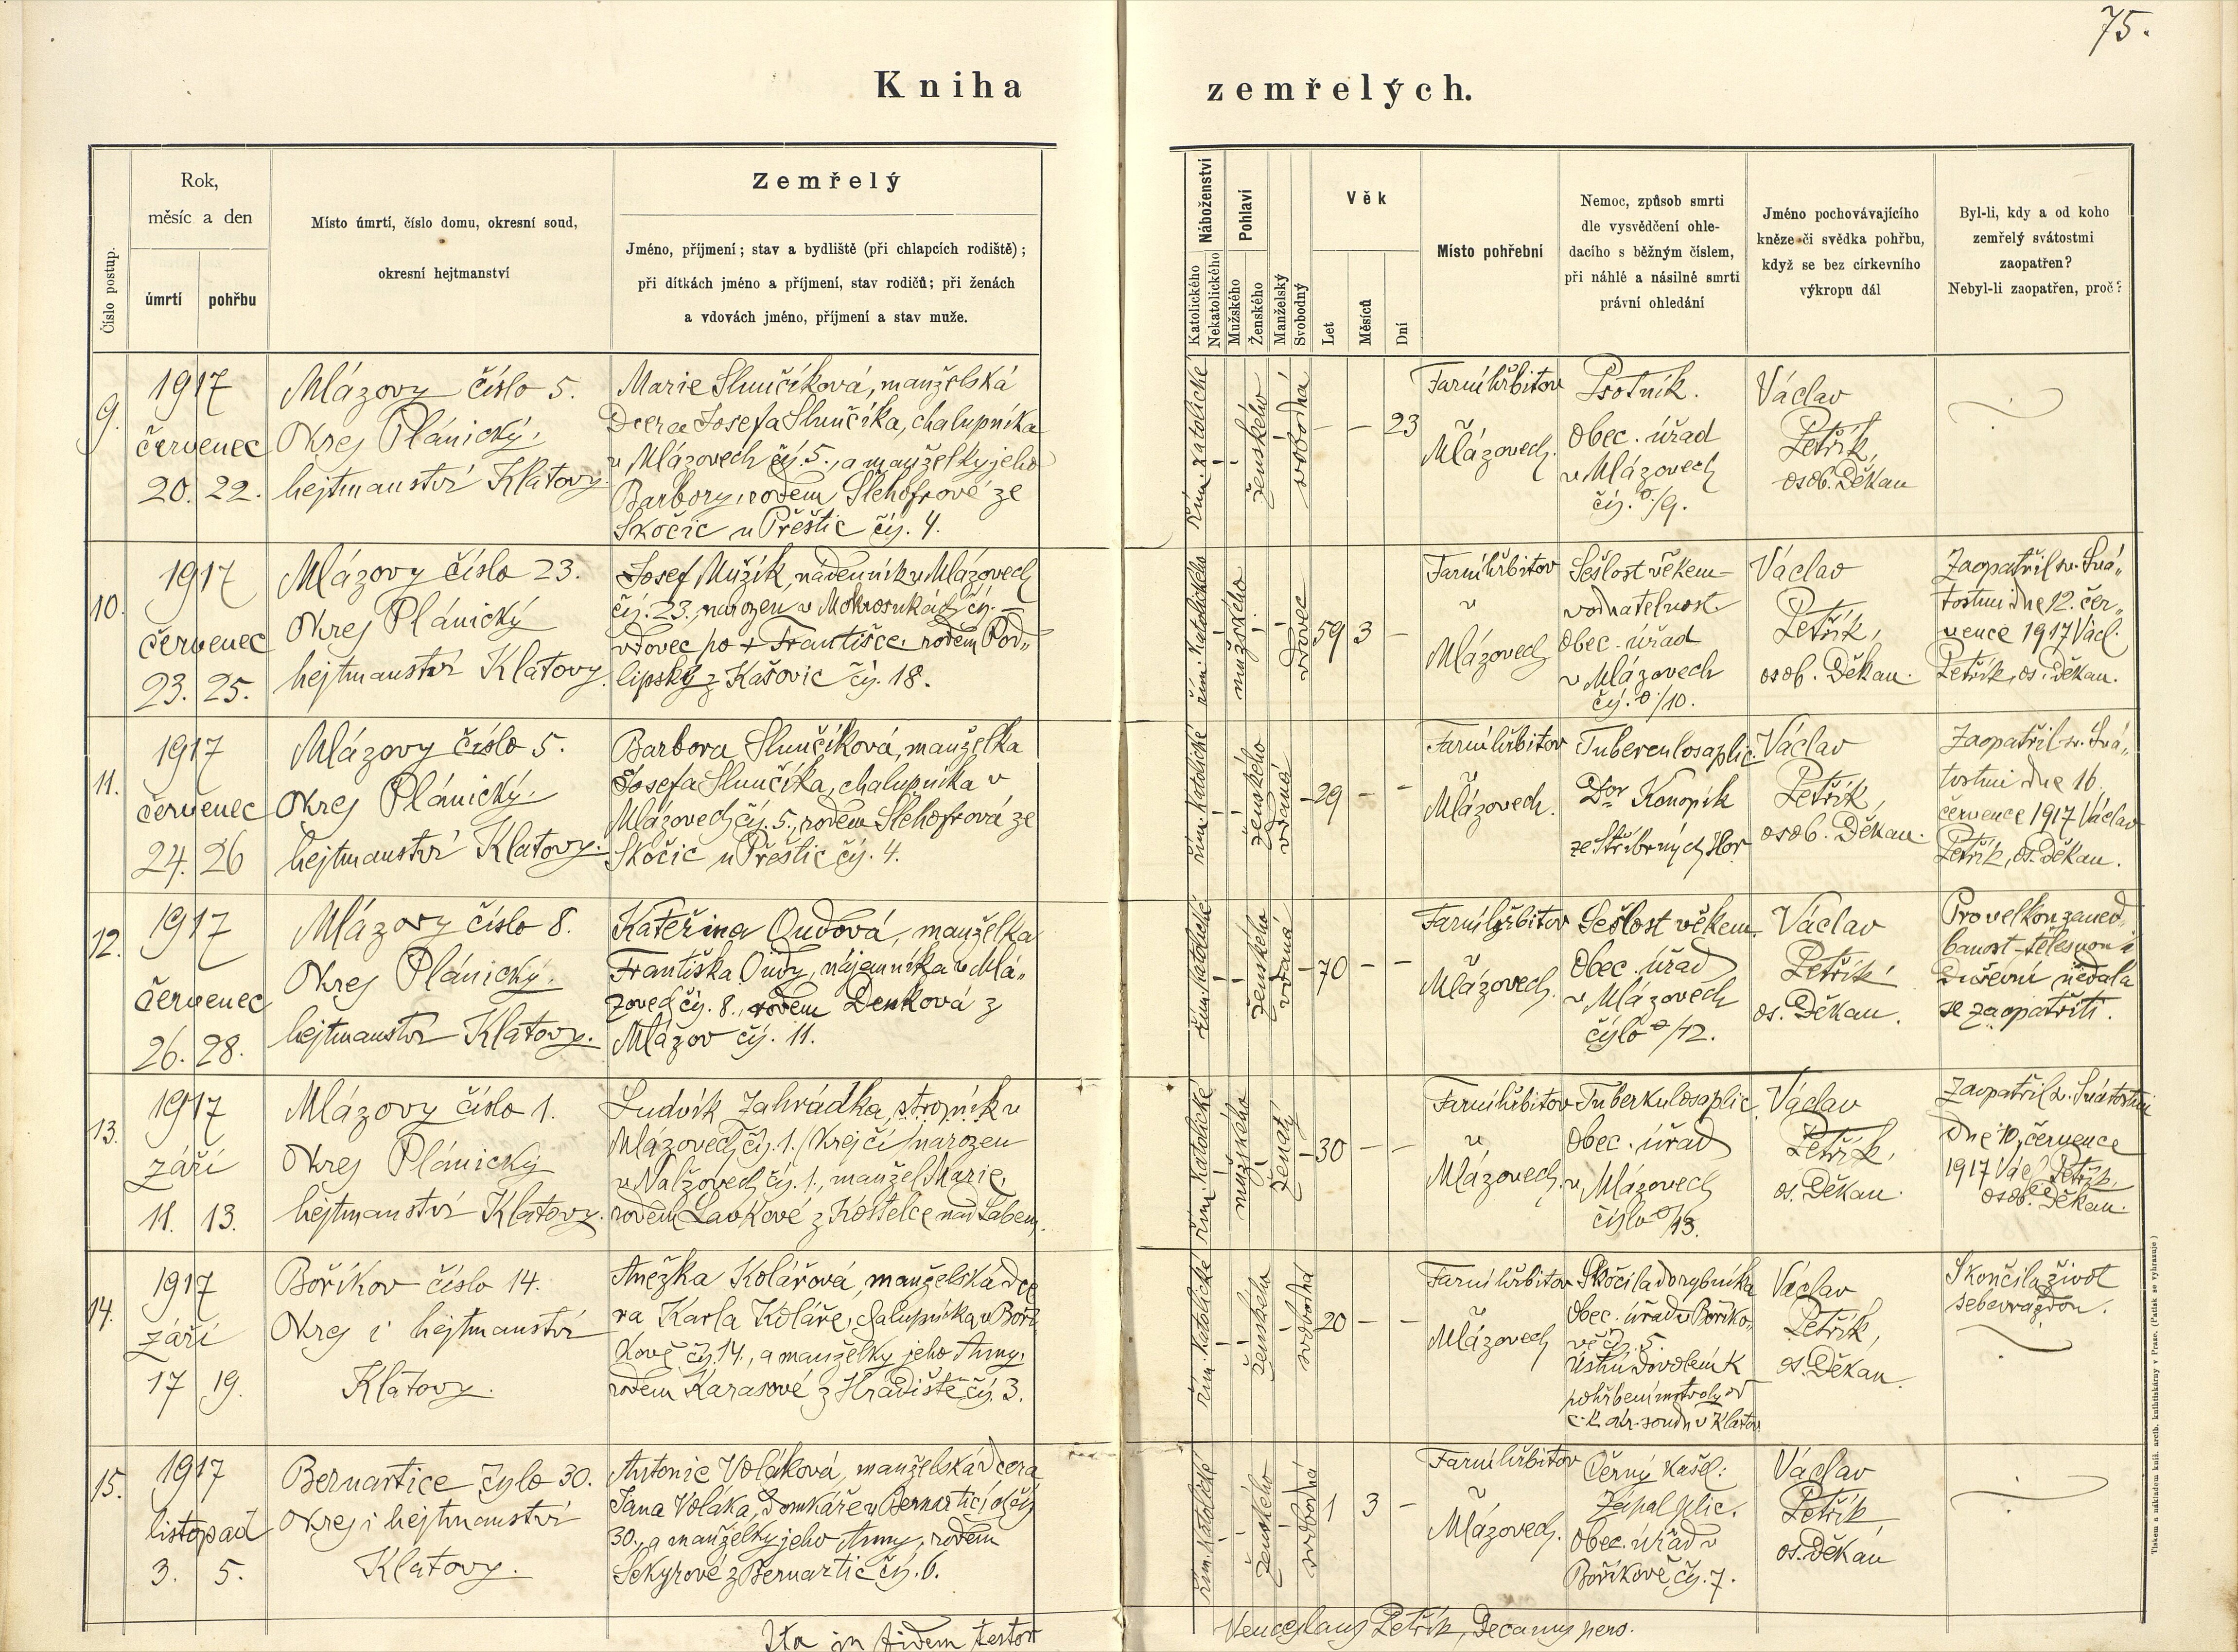 75.
Kniha zemřelých.
Číslo postup.
Rok,
měsíc a den
úmrtí
pohřbu
Místo úmrtí, číslo domu, okresní soud,
okresní hejtmanství
Zemřelý
Jméno, příjmení; stav a bydliště (při chlapcích rodiště);
při dítkách jméno a příjmení, stav rodičů; při ženách
a vdovách jméno, příjmení a stav muže.
Náboženství
Katolického
Nekatolického
Pohlaví
Mužského
Ženského
Manželský
Svobodný
Věk
Let
Měsíců
Dní
Místo pohřební
Nemoc, způsob smrti
dle vysvědčení ohle-
dacího s běžným číslem,
při náhlé a násilné smrti
právní ohledání
Jméno pochovávajícího
kněze či svědka pohřbu,
když se bez církevního
výkropu dál
Byl-li, kdy a od koho
zemřelý svátostmi
zaopatřen?
Nebyl-li zaopatřen, proč?
9.
1917
červenec
20. 22.
Mlázovy číslo 5.
Okres Plánický,
hejtmanství Klatovy.
Marie Slunčíková, manželská
dcera Josefa Slunčíka, chalupníka
v Mlázovech čís. 5., a manželky jeho
Barbory, rodem Šlehofrové ze
Skočic u Přeštic čís. 4.
řím. katolické
ženského
svobodná
— — 23
Farní hřbitov
v
Mlázovech.
Psotník.
Obec. úřad
v Mlázovech
čís. /9.
Václav
Petřík,
osob. Děkan
10.
1917
červenec
23. 25.
Mlázovy číslo 23.
Okres Plánický
hejtmanství Klatovy.
Josef Mužík, nádenník v Mlázovech
čís. 23, narozen v Mokrosukách čís. —
vdovec po + Františce, rodem Pod-
lipský z Kašovic čís. 18.
řím. katolického
mužského
vdovec
59 3 —
Farní hřbitov
v
Mlázovech
Sešlost věkem —
vodnatelnost.
Obec. úřad
v Mlázovech
čís. /10.
Václav
Petřík,
osob. Děkan.
Zaopatřil sv. Svá-
tostmi dne 12. čer-
vence 1917 Václ.
Petřík, os. děkan.
11.
1917
červenec
24. 26
Mlázovy číslo 5.
Okres Plánický.
hejtmanství Klatovy.
Barbora Slunčíková, manželka
Josefa Slunčíka, chalupníka v
Mlázovech čís. 5., rodem Šlehofrová ze
Skočic u Přeštic čís. 4.
řím. katolické
ženského
vdaná
29 — —
Farní hřbitov
v
Mlázovech.
Tuberculosa plic.
Dor Konopík
ze Stříbrných Hor
Václav
Petřík,
osob. Děkan.
Zaopatřil sv. Svá-
tostmi dne 16.
července 1917 Václav
Petřík, os. Děkan.
12.
1917
červenec
26. 28.
Mlázovy číslo 8.
Okres Plánický.
hejtmanství Klatovy.
Kateřina Oudová, manželka
Františka Oudy, nájemníka v Mlá-
zovech čís. 8., rodem Denková z
Mlázov čís. 11.
řím. katolické
ženského
vdaná
70 — —
Farní hřbitov
v
Mlázovech.
Sešlost věkem.
Obec. úřad
v Mlázovech
číslo /12.
Václav
Petřík
os. Děkan.
Pro velkou zaned-
banost tělesnou i
duševní nedala
se zaopatřiti.
13.
1917
září
11. 13.
Mlázovy číslo 1.
Okres Plánický
hejtmanství Klatovy.
Ludvík Zahrádka, strojník v
Mlázovech čís. 1. /krejčí/ narozen
v Nalžovech čís. 1., manžel Marie,
rodem Lavkové z Kostelce nad Labem.
řím. katolické
mužského
ženatý
30 — —
Farní hřbitov
v
Mlázovech.
Tuberkulosa plic.
Obec. úřad
v Mlázovech
číslo /13.
Václav
Petřík,
os. Děkan.
Zaopatřil sv. Svátostmi
dne 10. července
1917 Václ. Petřík,
osob. Děkan.
14.
1917
září
17 19.
Boříkov číslo 14.
Okres i hejtmanství
Klatovy.
Anežka Kolářová, manželská dce
ra Karla Koláře, chalupníka v Boří-
kově čís. 14., a manželky jeho Anny,
rodem Karasové z Hradiště čís. 3.
řím. katolické
ženského
svobodná
20 — —
Farní hřbitov
v
Mlázovech
Skočila do rybníka
Obec. úřad v Boříko-
vě čís. 5.
Ústní dovolení k
pohřbení mrtvoly od
c. k. okr. soudu v Klatov
Václav
Petřík,
os. Děkan.
Skončila život
sebevraždou.
15.
1917
listopad
3. 5.
Bernartice čís<!-- -->lo 30.
Okres i hejtmanství
Klatovy.
Antonie Voláková, manželská dcera
Jana Voláka, domkáře v Bernarticích čís.
30., a manželky jeho Anny, rodem
Sekyrové z Bernartic čís. 6.
řím. katolické
ženského
svobodná
1 3 —
Farní hřbitov
v
Mlázovech.
Černý kašel:
Zápal plic.
Obec. úřad v
Boříkově čís. 7.
Václav
Petřík
os. Děkan
Ita in fidem testor
Venceslaus Petřík, Decanus pers.
Tiskem a nákladem kníž. arcib. knihtiskárny v Praze. (Patisk se vyhrazuje)